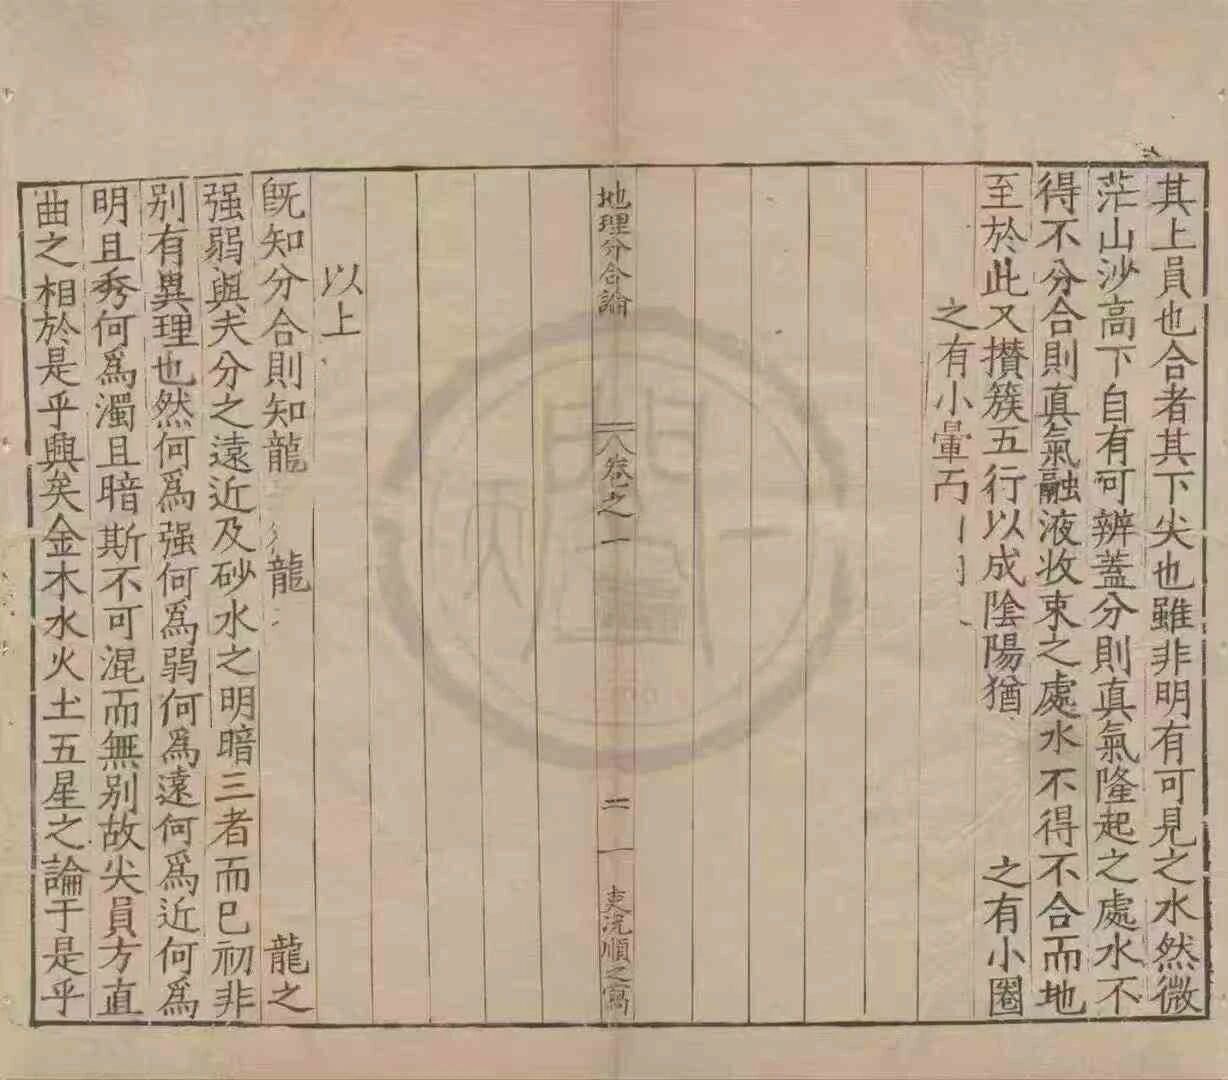 其上員也合者其下尖也雖非明有可見之水然微
茫山沙高下自有可辨蓋分則真氣隆起之處水不
得不分合則真氣融液收束之處水不得不合而地
至於此又攅簇五行以成陰陽猶之有小圈
之有小暈丙
地理分合論
八卷之一
二
吏沈順之寫
以上
旣知分合則知龍龍龍之
强弱與夫分之遠近及砂水之明暗三者而巳初非
别有異理也然何爲强何爲弱何爲遠何爲近何爲
明且秀何爲濁且暗斯不可混而無别故尖員方直
曲之相於是乎興矣金木水火土五星之論于是乎